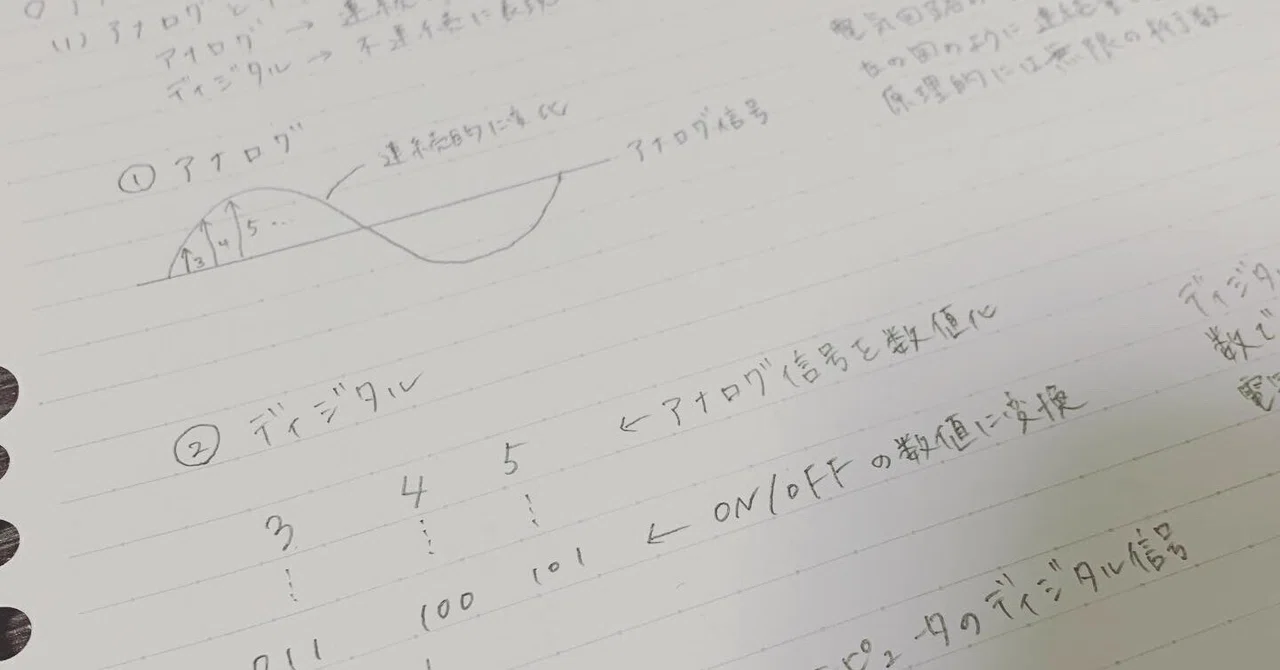 (1) アナログと
アナログ → 連続
ディジタル → 不連続に表現
電気回路
左の図のように連続
原理的には無限の桁数
① アナログ
連続的に変化
アナログ信号
3 4 5 ...
② ディジタル
3 4 5 ← アナログ信号を数値化
011 100 101 ← ON/OFFの数値に変換
ータのディジタル信号
ディジタ
数で
電気